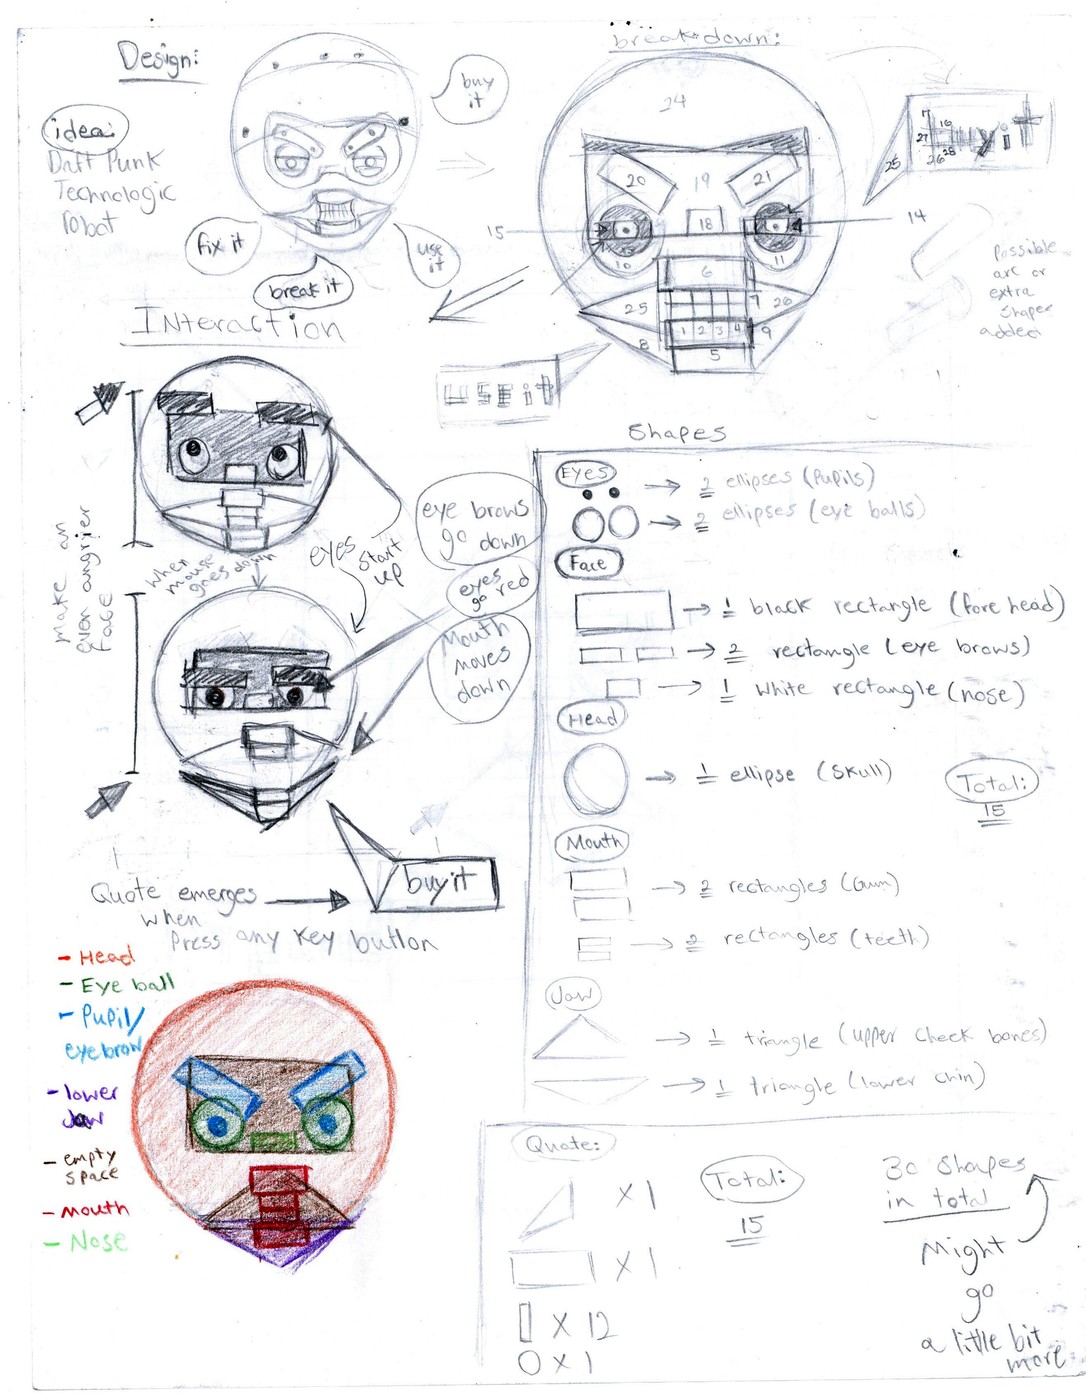 Design:
idea:
Daft Punk
Technologic
robot
buy
it
fix it
break it
use
it
breakdown:
24
20
19
21
18
15
14
10
11
6
25
7
26
1 2 3 4
9
8
5
25
7
16
27
26
28
buy it
use it
Possible
arc or
extra
shapes
added
Interaction
Make an
even angrier
face
when
mouse
goes down
eyes start
up
eye brows
go down
eyes
go red
Mouth
moves
down
buy it
Quote emerges
when
Press any key button
- Head
- Eye ball
- Pupil/
eyebrow
- lower
Jaw
- empty
space
- mouth
- Nose
Shapes
Eyes
→ 2 ellipses (Pupils)
→ 2 ellipses (eye balls)
Face
→ 1 black rectangle (fore head)
→ 2 rectangle (eye brows)
→ 1 white rectangle (nose)
Head
→ 1 ellipse (skull)
Total:
15
Mouth
→ 2 rectangles (Gum)
→ 2 rectangles (teeth)
Jaw
→ 1 triangle (upper cheek bones)
→ 1 triangle (lower chin)
Quote:
X 1
X 1
X 12
X 1
Total:
15
30 shapes
in total
Might
go
a little bit
more